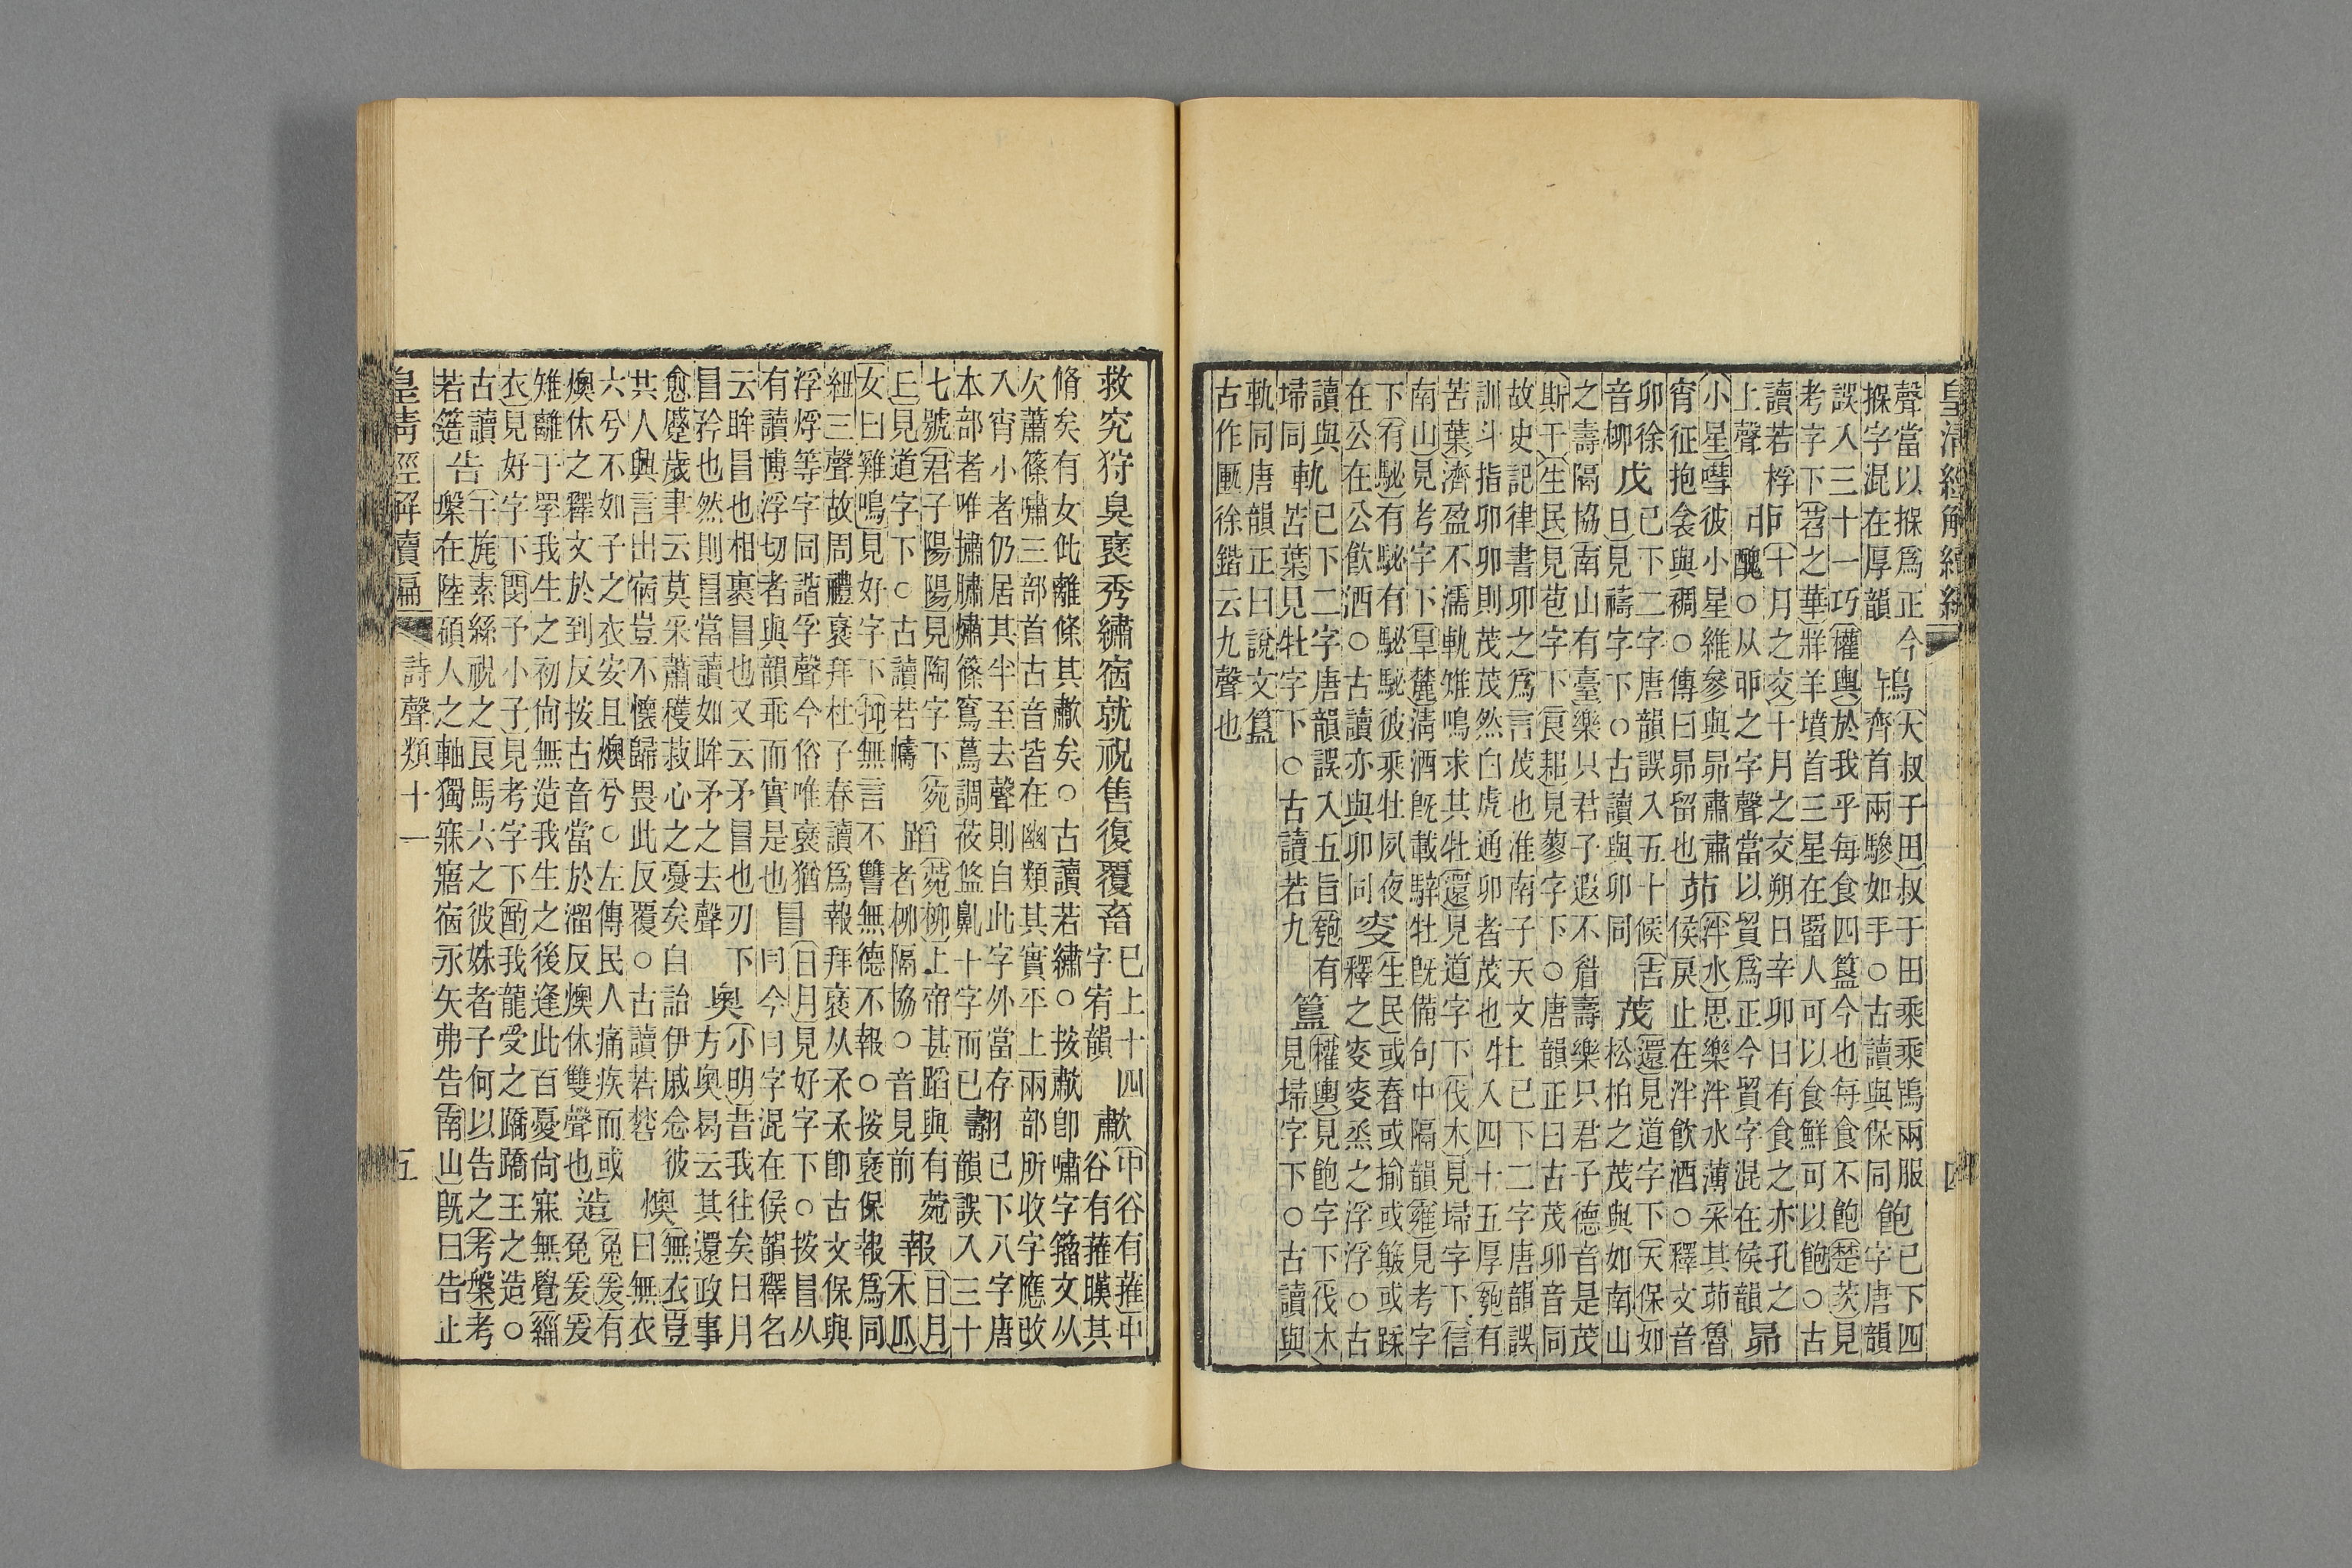 皇清經解續編 四
聲當以搩爲正今搩字混在厚韻鴇大叔于田叔于田乘乘鴇兩服齊首兩驂如手○古讀與保同飽已下四字唐韻
誤入三十一巧權輿於我乎每食四簋今也每食不飽楚茨見考字下苕之華牂羊墳首三星在罶人可以食鮮可以飽○古
讀若桴上聲戼十月之交十月之交朔日辛卯日有食之亦孔之醜○从丣之字聲當以貿爲正今貿字混在侯韻昴
小星嘒彼小星維參與昴肅肅宵征抱衾與裯○傳曰昴留也茆泮水思樂泮水薄采其茆魯侯戾止在泮飲酒○釋文音
卯徐音柳戊已下二字唐韻誤入五十候吉日見禱字下○古讀與卯同茂還見道字下天保如松柏之茂與如南山
之壽隔協南山有臺樂只君子遐不眉壽樂只君子德音是茂斯干生民見苞字下良耜見蓼字下○唐韻正曰古茂卯音同
故史記律書卯之爲言茂也淮南子天文訓斗指卯卯則茂茂然白虎通卯者茂也牡已下二字唐韻誤入四十五厚匏有
苦葉濟盈不濡軌雉鳴求其牡還見道字下伐木見埽字下信南山見考字下旱麓清酒既載騂牡既備句中隔韻雍見考字
下有駜有駜有駜駜彼乘牡夙夜在公在公飲酒○古讀亦與卯同叟生民或舂或揄或簸或蹂釋之叟叟烝之浮浮○古
讀與埽同軌已下二字唐韻誤入五旨匏有苦葉見牡字下○古讀若九簋權輿見飽字下伐木見埽字下○古讀與
軌同唐韻正曰說文簋古作匭徐鍇云九聲也
救究狩臭褎秀繡宿就祝售復覆畜已上十四字宥韻歗中谷有蓷中谷有蓷暵其
脩矣有女仳離條其歗矣○古讀若繡○按歗卽嘯字籀文从欠蕭篠嘯三部首古音皆在幽類其實平上兩部所收字應改
入宵小者仍居其半篠至去聲則自此字外當存本部者唯熽篠窵蔦調莜鼽十字而已翿已下八字唐韻誤入三十
七號君子陽陽見陶字下宛上見道字下○古讀若幬蹈菀柳上帝甚蹈與有菀者柳隔協○音見前報日月木瓜
女曰雞鳴見好字下抑無言不讐無德不報○按褎保報爲同紐三聲故周禮褎拜杜子春讀爲報拜褎从卽古文保與
浮烰等字同諧孚聲今俗唯褎猶有讀博浮切者與韻乖而實是也冒日月見好字下○按冒从冃今冃字混在侯韻釋名
云眸冒也相裹冒也又云矛冒也刃下冒矜也然則冒當讀如眸矛之去聲奧小明昔我往矣日月方奧曷云其還政事
愈蹙歲聿云莫采蕭穫菽心之憂矣自詒伊戚念彼共人興言出宿豈不懷歸畏此反覆○古讀若燠無衣豈曰無衣
六兮不如子之衣安且燠兮○左傳民人痛疾而或燠休之釋文於到反按古音當於溜反燠休雙聲也造兔爰有兔爰爰
雉離于罦我生之初尚無造我生之後逢此百憂尚寐無覺緇衣見好字下閔予小子見考字下酌我龍受之蹻蹻王之造○
古讀若簉告干旄素絲祝之良馬六之彼姝者子何以告之考槃考槃在陸碩人之軸獨寐寤宿永矢弗告南山既曰告止
皇清經解續編 詩聲類十一 五